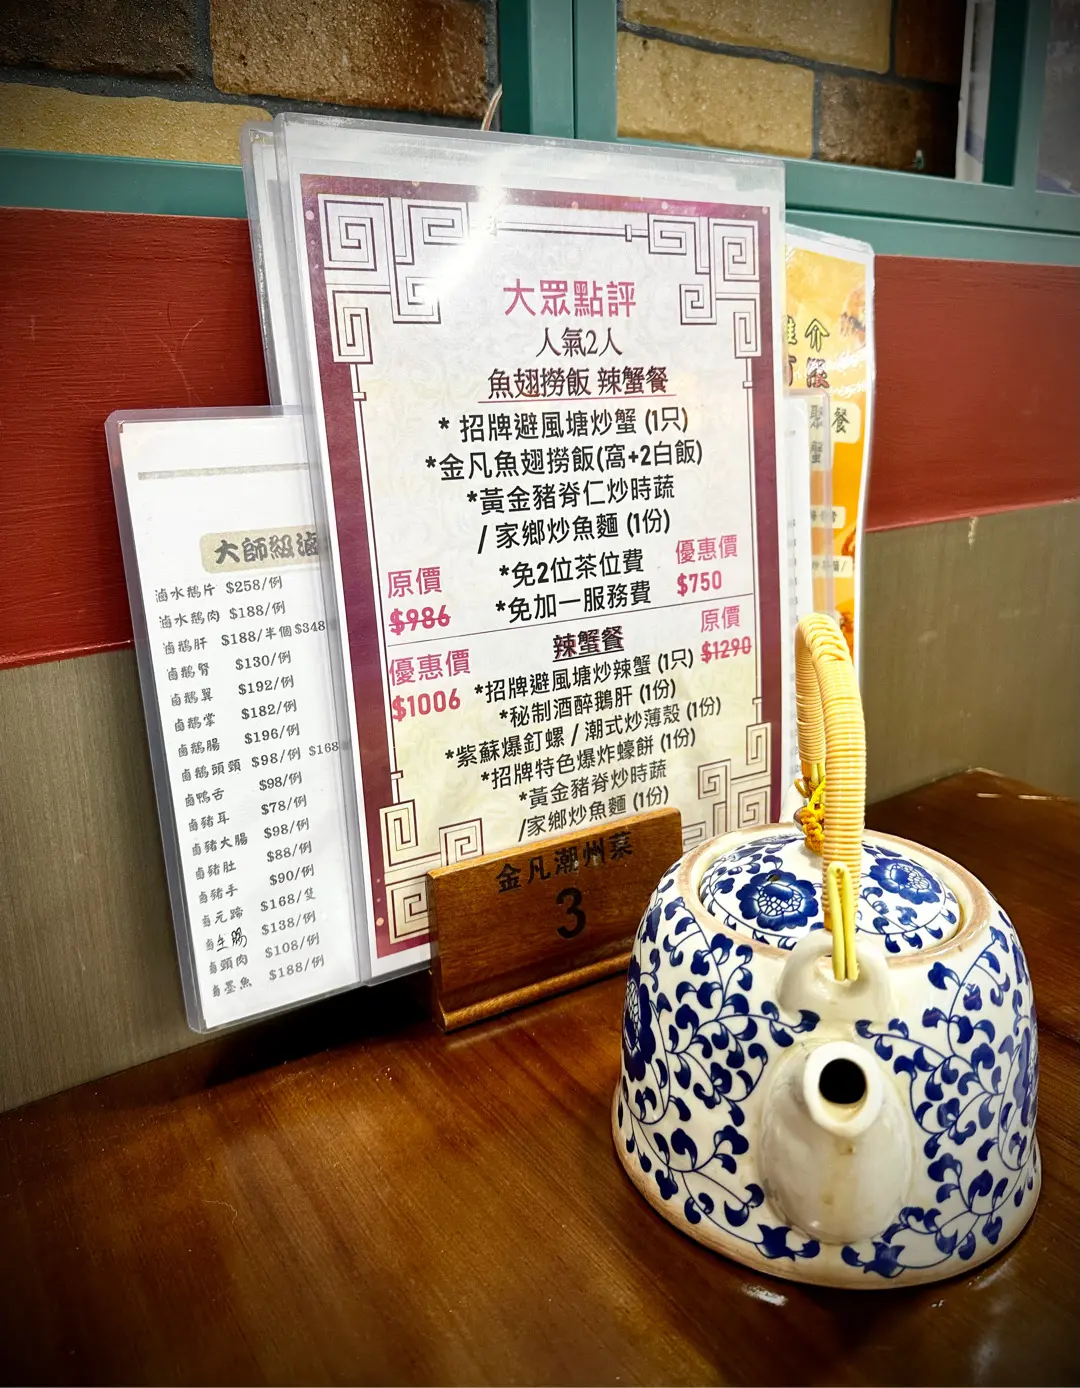 大眾點評
人氣2人
魚翅撈飯 辣蟹餐
* 招牌避風塘炒蟹 (1只)
*金凡魚翅撈飯(窩+2白飯)
*黃金豬脊仁炒時蔬
/ 家鄉炒魚麵 (1份)
*免2位茶位費
*免加一服務費
原價
$986
優惠價
$750
辣蟹餐
原價
$1290
優惠價
$1006
*招牌避風塘炒辣蟹 (1只)
*秘制酒醉鵝肝 (1份)
*紫蘇爆釘螺 / 潮式炒薄殼 (1份)
*招牌特色爆炸蠔餅 (1份)
*黃金豬脊炒時蔬
/家鄉炒魚麵 (1份)
金凡潮州菜
3
大師級滷
滷水鵝片 $258/例
滷水鵝肉 $188/例
滷鵝肝 $188/半個$348
滷鵝腎 $130/例
滷鵝翼 $192/例
滷鵝掌 $182/例
滷鵝腸 $196/例
滷鵝頭頸 $98/例 $168
滷鴨舌 $98/例
滷豬耳 $78/例
滷豬大腸 $98/例
滷豬肚 $88/例
滷豬手 $90/例
滷元蹄 $168/隻
滷生腸 $138/例
滷頸肉 $108/例
滷墨魚 $188/例
介
餐